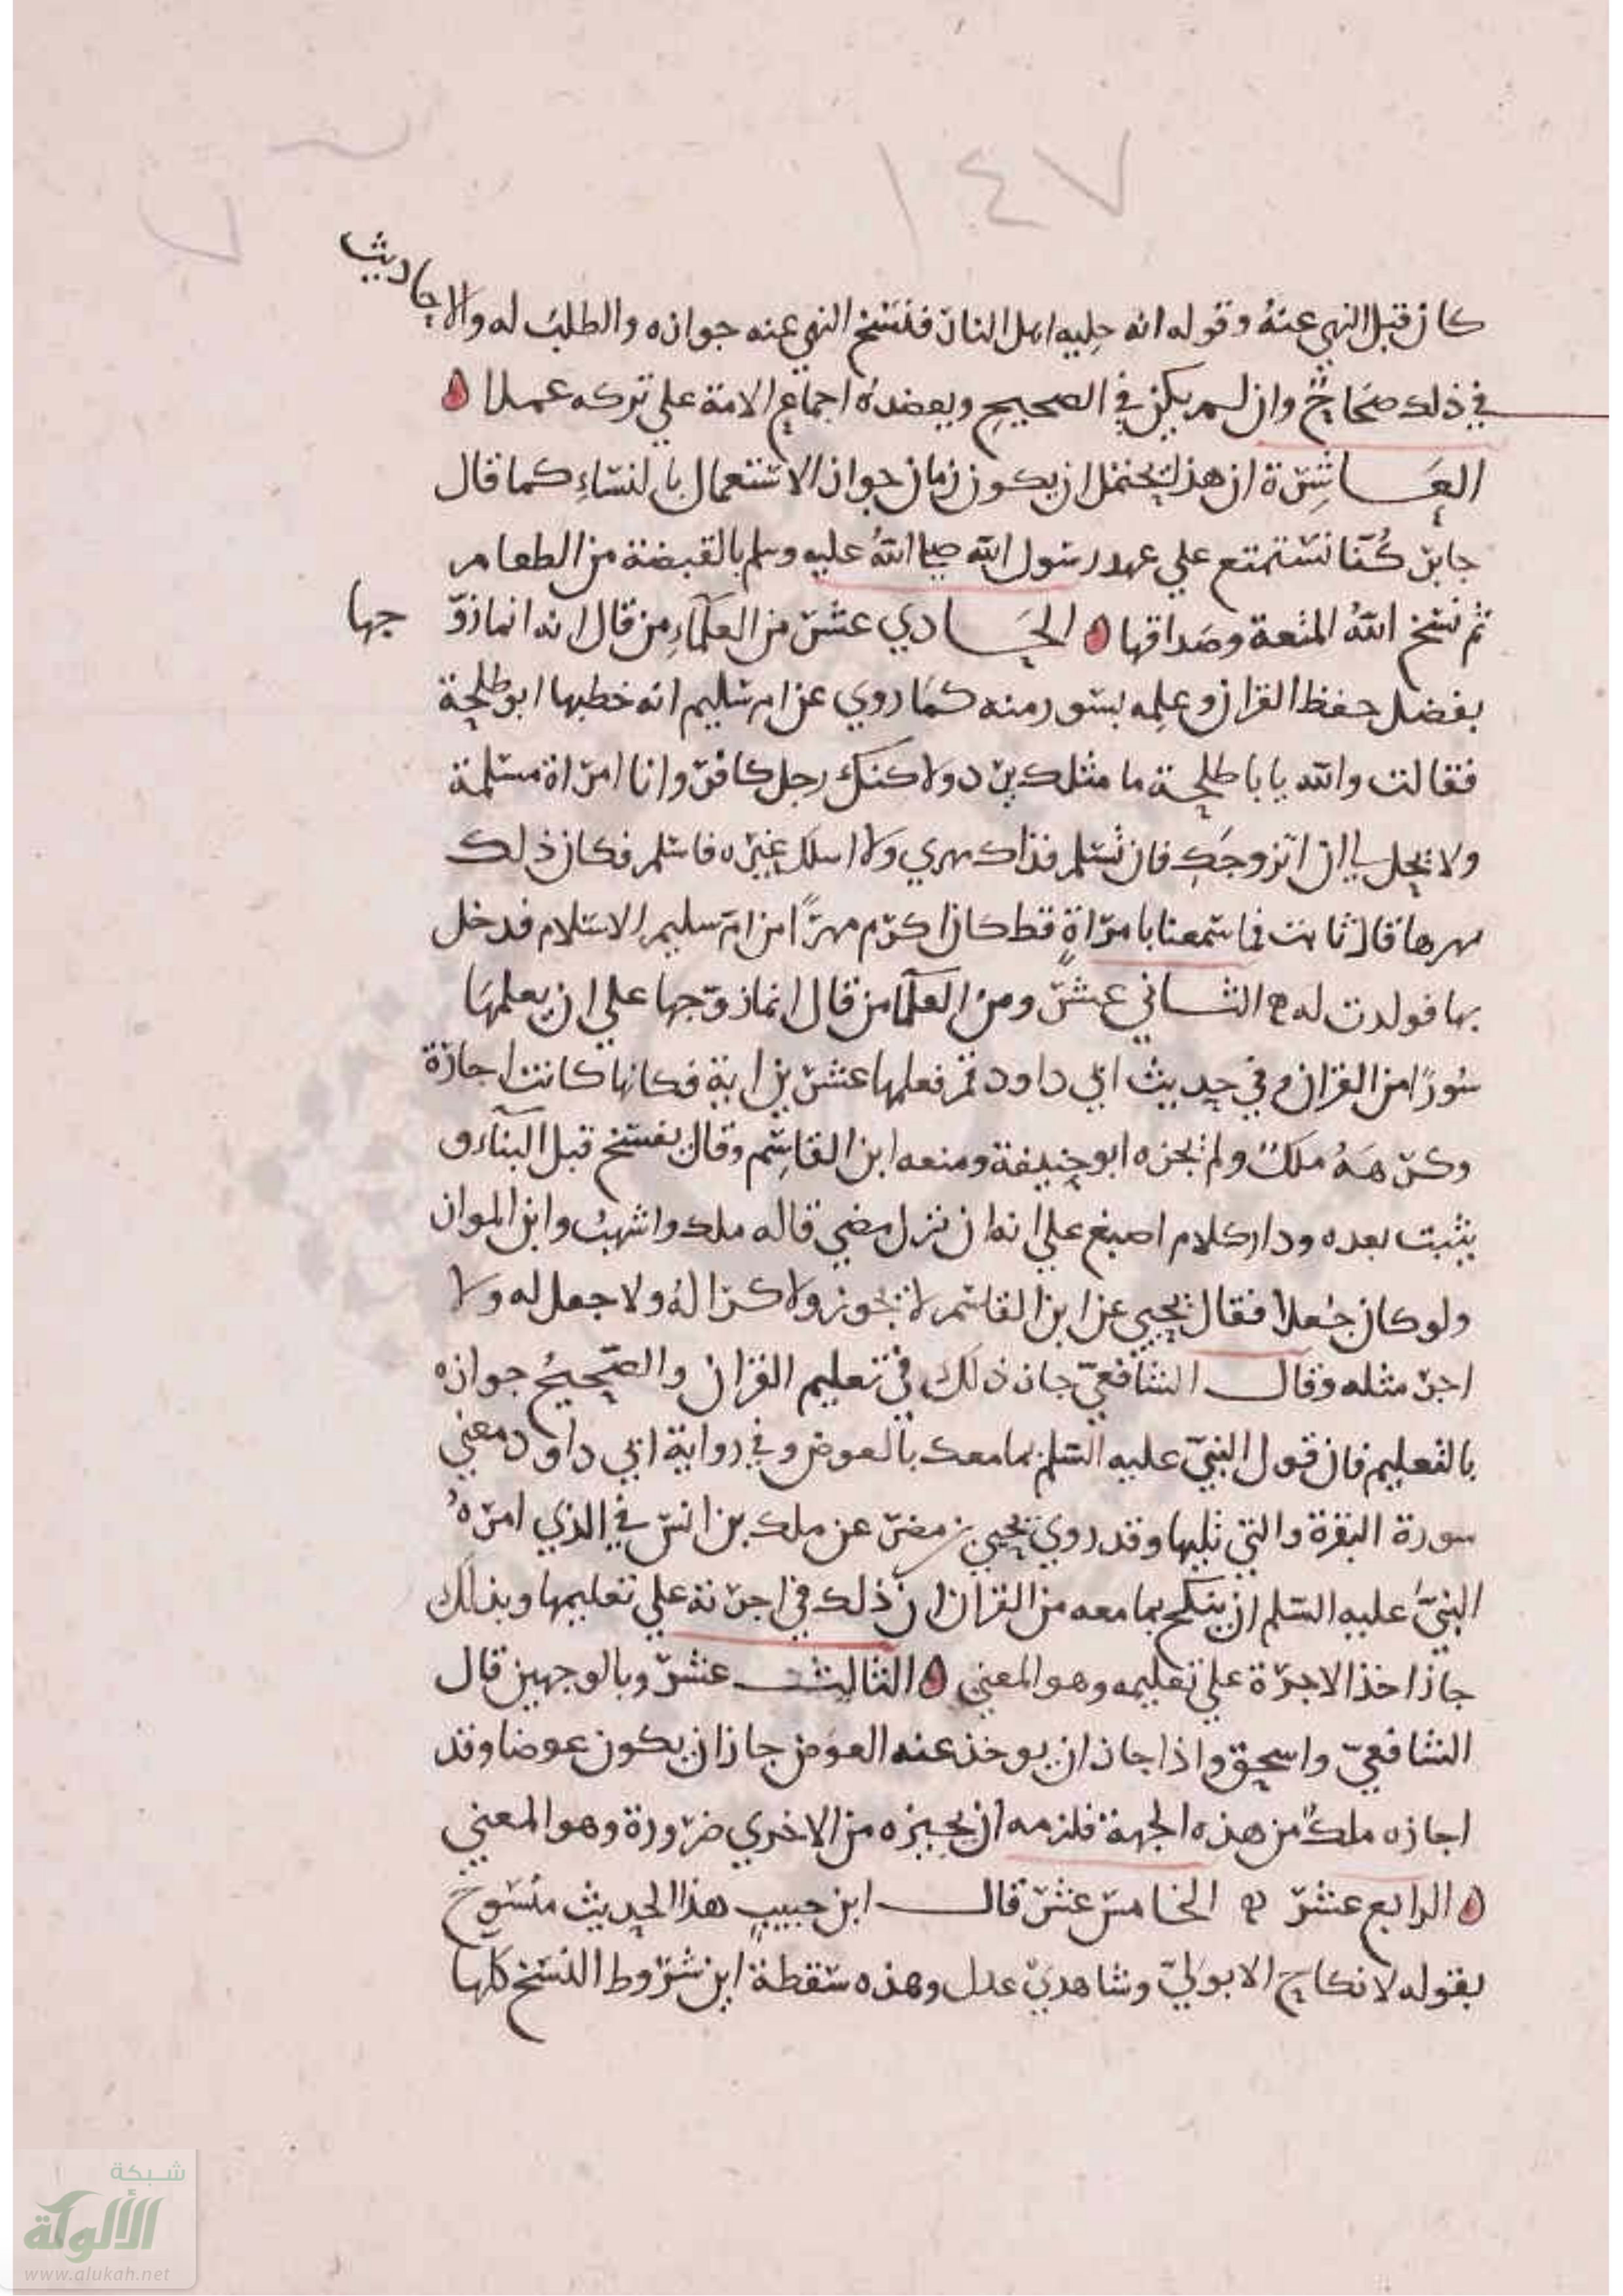 ١٤٧
كان قبل النهي عنهُ وقوله انه حِليه اهل النار فنسخ النهي عنه جوازه والطلبُ له والاحاديث
في ذلك صحَاحٌ وان لم يكن في الصحيحِ ويعضدهُ اجماع الامة علي تركه عملا
العَاشِرة ان هذا يحتمل ان يكون زمان جواز الاستعمال بالنسَاءِ كما قال
جابر كُنّا نستمتع علي عهد رسول الله صلى اللهُ عليه وسلم بالقبضة من الطعام
ثم نسخ اللهُ المتعة وصَداقها الحَادي عشر من العلمَآءِ من قال انه انما زوّجها
بفضل حفظ القران وعلمِه بسور منه كمَا روي عن ام سُليم انه خطبها ابو طلحة
فقالت والله يابا طلحة ما مثلك يرد ولاكنك رجل كافر وانا امراة مسلمة
ولا يحل لي ان اتزوجَكِ فان تُسْلم فذاك مهري وَلا اسلك غيره فاسْلم فكان ذلك
مهرها قال ثابت فما سَمعنا بامراةٍ قط كان اكرم مهرًا من ام سليم الاسَلام فدخل
بها فولدت له الثاني عشر ومن العلمآ من قال انما زوّجها علي ان يعلمهَا
سُورًا من القران وفي حديث ابي داود قم فعلمها عشرين اية فكانها كانت اجازة
وكرهَهُ مَلكٌ ولم يُجزه ابو حنيفة ومنعه ابن القاسِم وقال يفسَخ قبل البنآء و
يثبت بعده ودار كلام اصبغ علي انه ان نزل مضي قاله ملك واشهبُ وابن المواز
ولو كان جُعلا فقال يحيي عن ابن القاسم لا يجوز ولا كرا لهُ ولا جعل له ولا
اجر مثله وقال الشافعيّ جاز ذلك في تعليم القران والصّحيحُ جوازه
بالتعليم فان قول النبيّ عليه السّلم بما معك بالعوض وفي رواية ابي داود معني
سورة البقرة والتي تليها وقد روي يحيي بن مضر عن ملك بن انس في الذي امرهُ
النبيُّ عليه السّلم ان ينكح بما معه من القران ان ذلك في اجرته علي تعليمها وبذلك
جاز اخذ الاجرة علي تعليمه وهو المعني الثالث عشر وبالوجهين قال
الشافعيّ واسحق واذا جاز ان يوخذ عنه العوَض جاز ان يكون عوضا وقد
اجازه ملكٌ من هذه الجهة فلزمه ان يجيزه من الاخري ضرورة وهو المعني
الرابع عشر الخامس عشر قال ابن حبيبٍ هذا الحديث منسَوخٌ
بقوله لا نكاح الا بوَليّ وشاهديْ عدل وهذه سَقطة اين شرُوط النسَخ كلها
شبكة
الألوكة
www.alukah.net